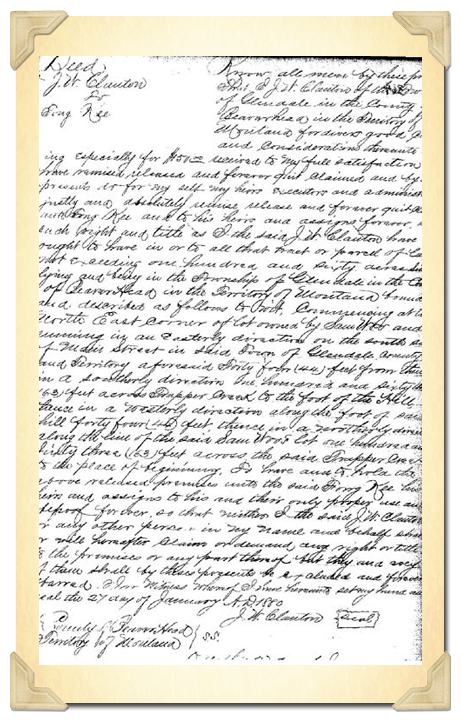 Deed
J.W. Clanton
to
Fong Kee
Know all men by these pr
that I J.W. Clanton of the Town
of Glendale in the County
Beaverhead in the Territory of
Montana for divers good
and Considerations thereunto
ing especially for $50.00 received to my full satisfaction
have remised released and forever quit claimed and by
presents do for my self my heirs executors and administ
justly and absolutely remise release and forever quit
said Fong Kee and to his heirs and assigns forever,
such right and title as I the said J.W. Clanton have
ought to have in or to all that tract or parcel of La
not exceeding one hundred and sixty acres
lying and being in the Township of Glendale in the Co
of Beaver Head in the Territory of Montana bound
and described as follows to wit, Commencing at
North East Corner of lot owned by Sam Woo and
running in an Easterly direction on the south s
of Main Street in said Town of Glendale County
and Territory aforesaid Forty four (44) feet from
in a southerly direction One hundred and sixty th
(163) feet across Trapper Creek to the foot of the Hill
thence in a westerly direction along the foot of said
hill forty four (44) feet, thence in a northerly direc
along the line of the said Sam Woo's lot one hundred an
sixty three (163) feet across the said Trapper Creek
to the place of beginning, To have and to hold the
above released premises unto the said Fong Kee his
heirs and assigns to his and their only proper use an
behoof forever, so that neither I the said J.W. Clanton
or any other person in my name and behalf sha
or will hereafter claim or demand any right or title
to the premises or any part thereof but they and every
of them shall by these presents be excluded and forever
barred. In Witness Whereof I have hereunto set my hand an
seal the 27 day of January A.D. 1880
J.W. Clanton Seal
County of Beaver Head
Territory of Montana } SS.